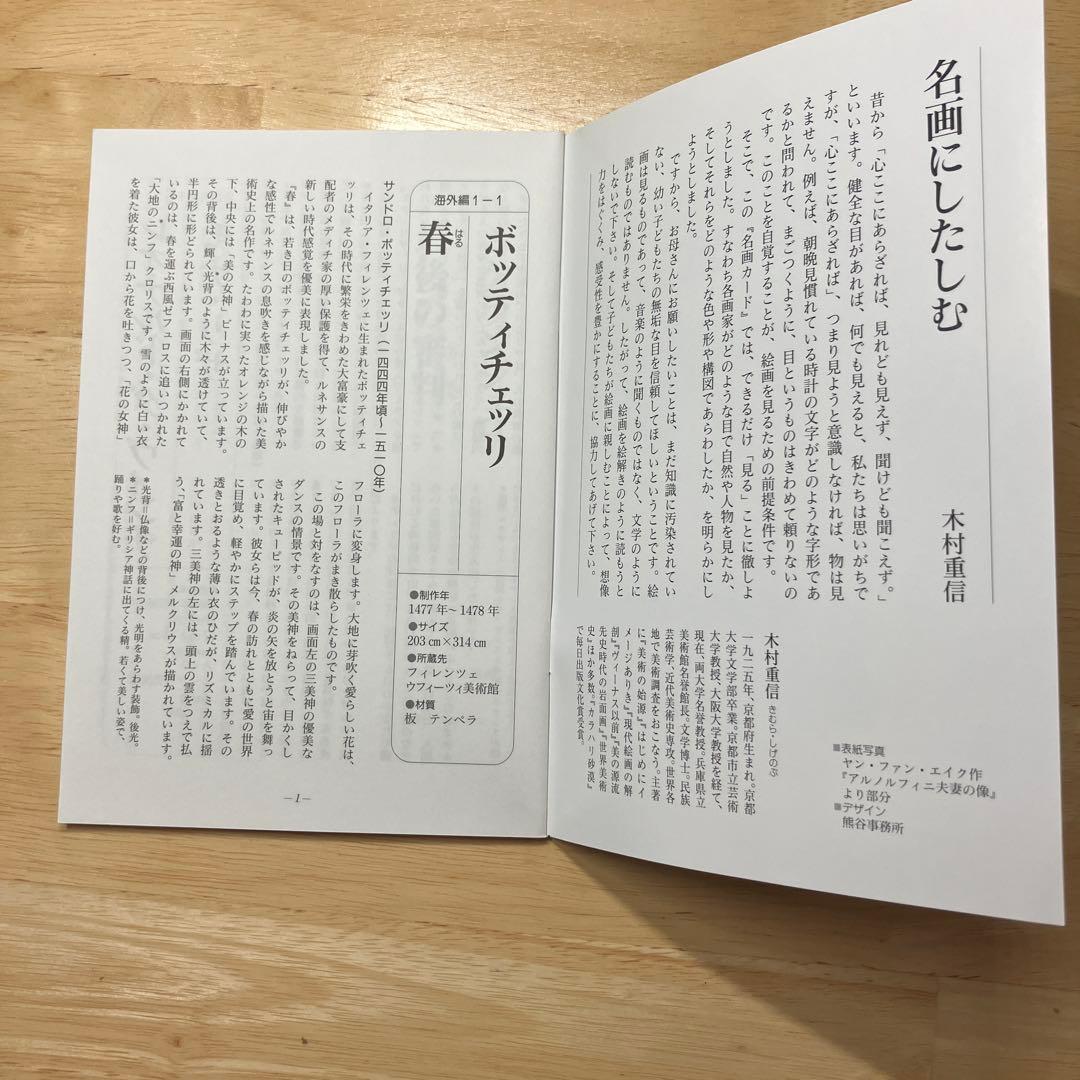 名画にしたしむ
木村重信
昔から「心ここにあらざれば、見れども見えず、聞けども聞こえず。」
といいます。健全な目があれば、何でも見えると、私たちは思いがちで
すが、「心ここにあらざれば」、つまり見ようと意識しなければ、物は見
えません。例えば、朝晩見慣れている時計の文字がどのような字形であ
るかと問われて、まごつくように、目というものはきわめて頼りないの
です。このことを自覚することが、絵画を見るための前提条件です。
そこで、この『名画カード』では、できるだけ「見る」ことに徹しよ
うとしました。すなわち各画家がどのような目で自然や人物を見たか、
そしてそれらをどのような色や形や構図であらわしたか、を明らかにし
ようとしました。
ですから、お母さんにお願いしたいことは、まだ知識に汚染されてい
ない、幼い子どもたちの無垢な目を信頼してほしいということです。絵
画は見るものであって、音楽のように聞くものではなく、文学のように
読むものではありません。したがって、絵画を絵解きのように読もうと
しないで下さい。そして子どもたちが絵画に親しむことによって、想像
力をはぐくみ、感受性を豊かにすることに、協力してあげて下さい。
木村重信 きむら・しげのぶ
一九二五年、京都府生まれ。京都
大学文学部卒業。京都市立芸術
大学教授、大阪大学教授を経て、
現在、両大学名誉教授。兵庫県立
美術館名誉館長。文学博士。民族
芸術学、近代美術史専攻。世界各
地で美術調査をおこなう。主著
に『美術の始源』『はじめにイ
メージありき』『現代絵画の解
剖』『ヴィーナス以前』『美の源流
先史時代の岩面画』『世界美術
史』ほか多数。『カラハリ砂漠』
で毎日出版文化賞受賞。
■表紙写真
ヤン・ファン・エイク作
『アルノルフィニ夫妻の像』
より部分
■デザイン
熊谷事務所
海外編1－1
ボッティチェッリ
春
はる
●制作年
1477年～1478年
●サイズ
203㎝×314㎝
●所蔵先
フィレンツェ
ウフィーツィ美術館
●材質
板 テンペラ
サンドロ・ボッティチェッリ（一四四四年頃～一五一〇年）
イタリア・フィレンツェに生まれたボッティチェ
ッリは、その時代に繁栄をきわめた大富豪にして支
配者のメディチ家の厚い保護を得て、ルネサンスの
新しい時代感覚を優美に表現しました。
『春』は、若き日のボッティチェッリが、伸びやか
な感性でルネサンスの息吹きを感じながら描いた美
術史上の名作です。たわわに実ったオレンジの木の
下、中央には「美の女神」ビーナスが立っています。
その背後は、輝く光背*のように木々が透けていて、
半円形に形どられています。画面の右側にかかれて
いるのは、春を運ぶ西風ゼフュロスに追いつかれた
「大地のニンフ*」クロリスです。雪のように白い衣
を着た彼女は、口から花を吐きつつ、「花の女神」
フローラに変身します。大地に芽吹く愛らしい花は、
このフローラがまき散らしたものです。
この場と対をなすのは、画面左の三美神の優美な
ダンスの情景です。その美神をねらって、目かくし
されたキューピッドが、炎の矢を放とうと宙を舞っ
ています。彼女らは今、春の訪れとともに愛の世界
に目覚め、軽やかにステップを踏んでいます。その
透きとおるような薄い衣のひだが、リズミカルに揺
れています。三美神の左には、頭上の雲をつえで払
う、「富と幸運の神」メルクリウスが描かれています。
＊光背＝仏像などの背後につけ、光明をあらわす装飾。後光。
＊ニンフ＝ギリシア神話に出てくる精。若くて美しい姿で、
踊りや歌を好む。
―1―